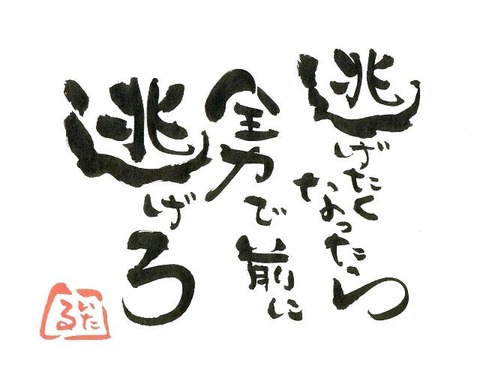 逃げたく
なったら
全力で前に
逃げろ
いたる